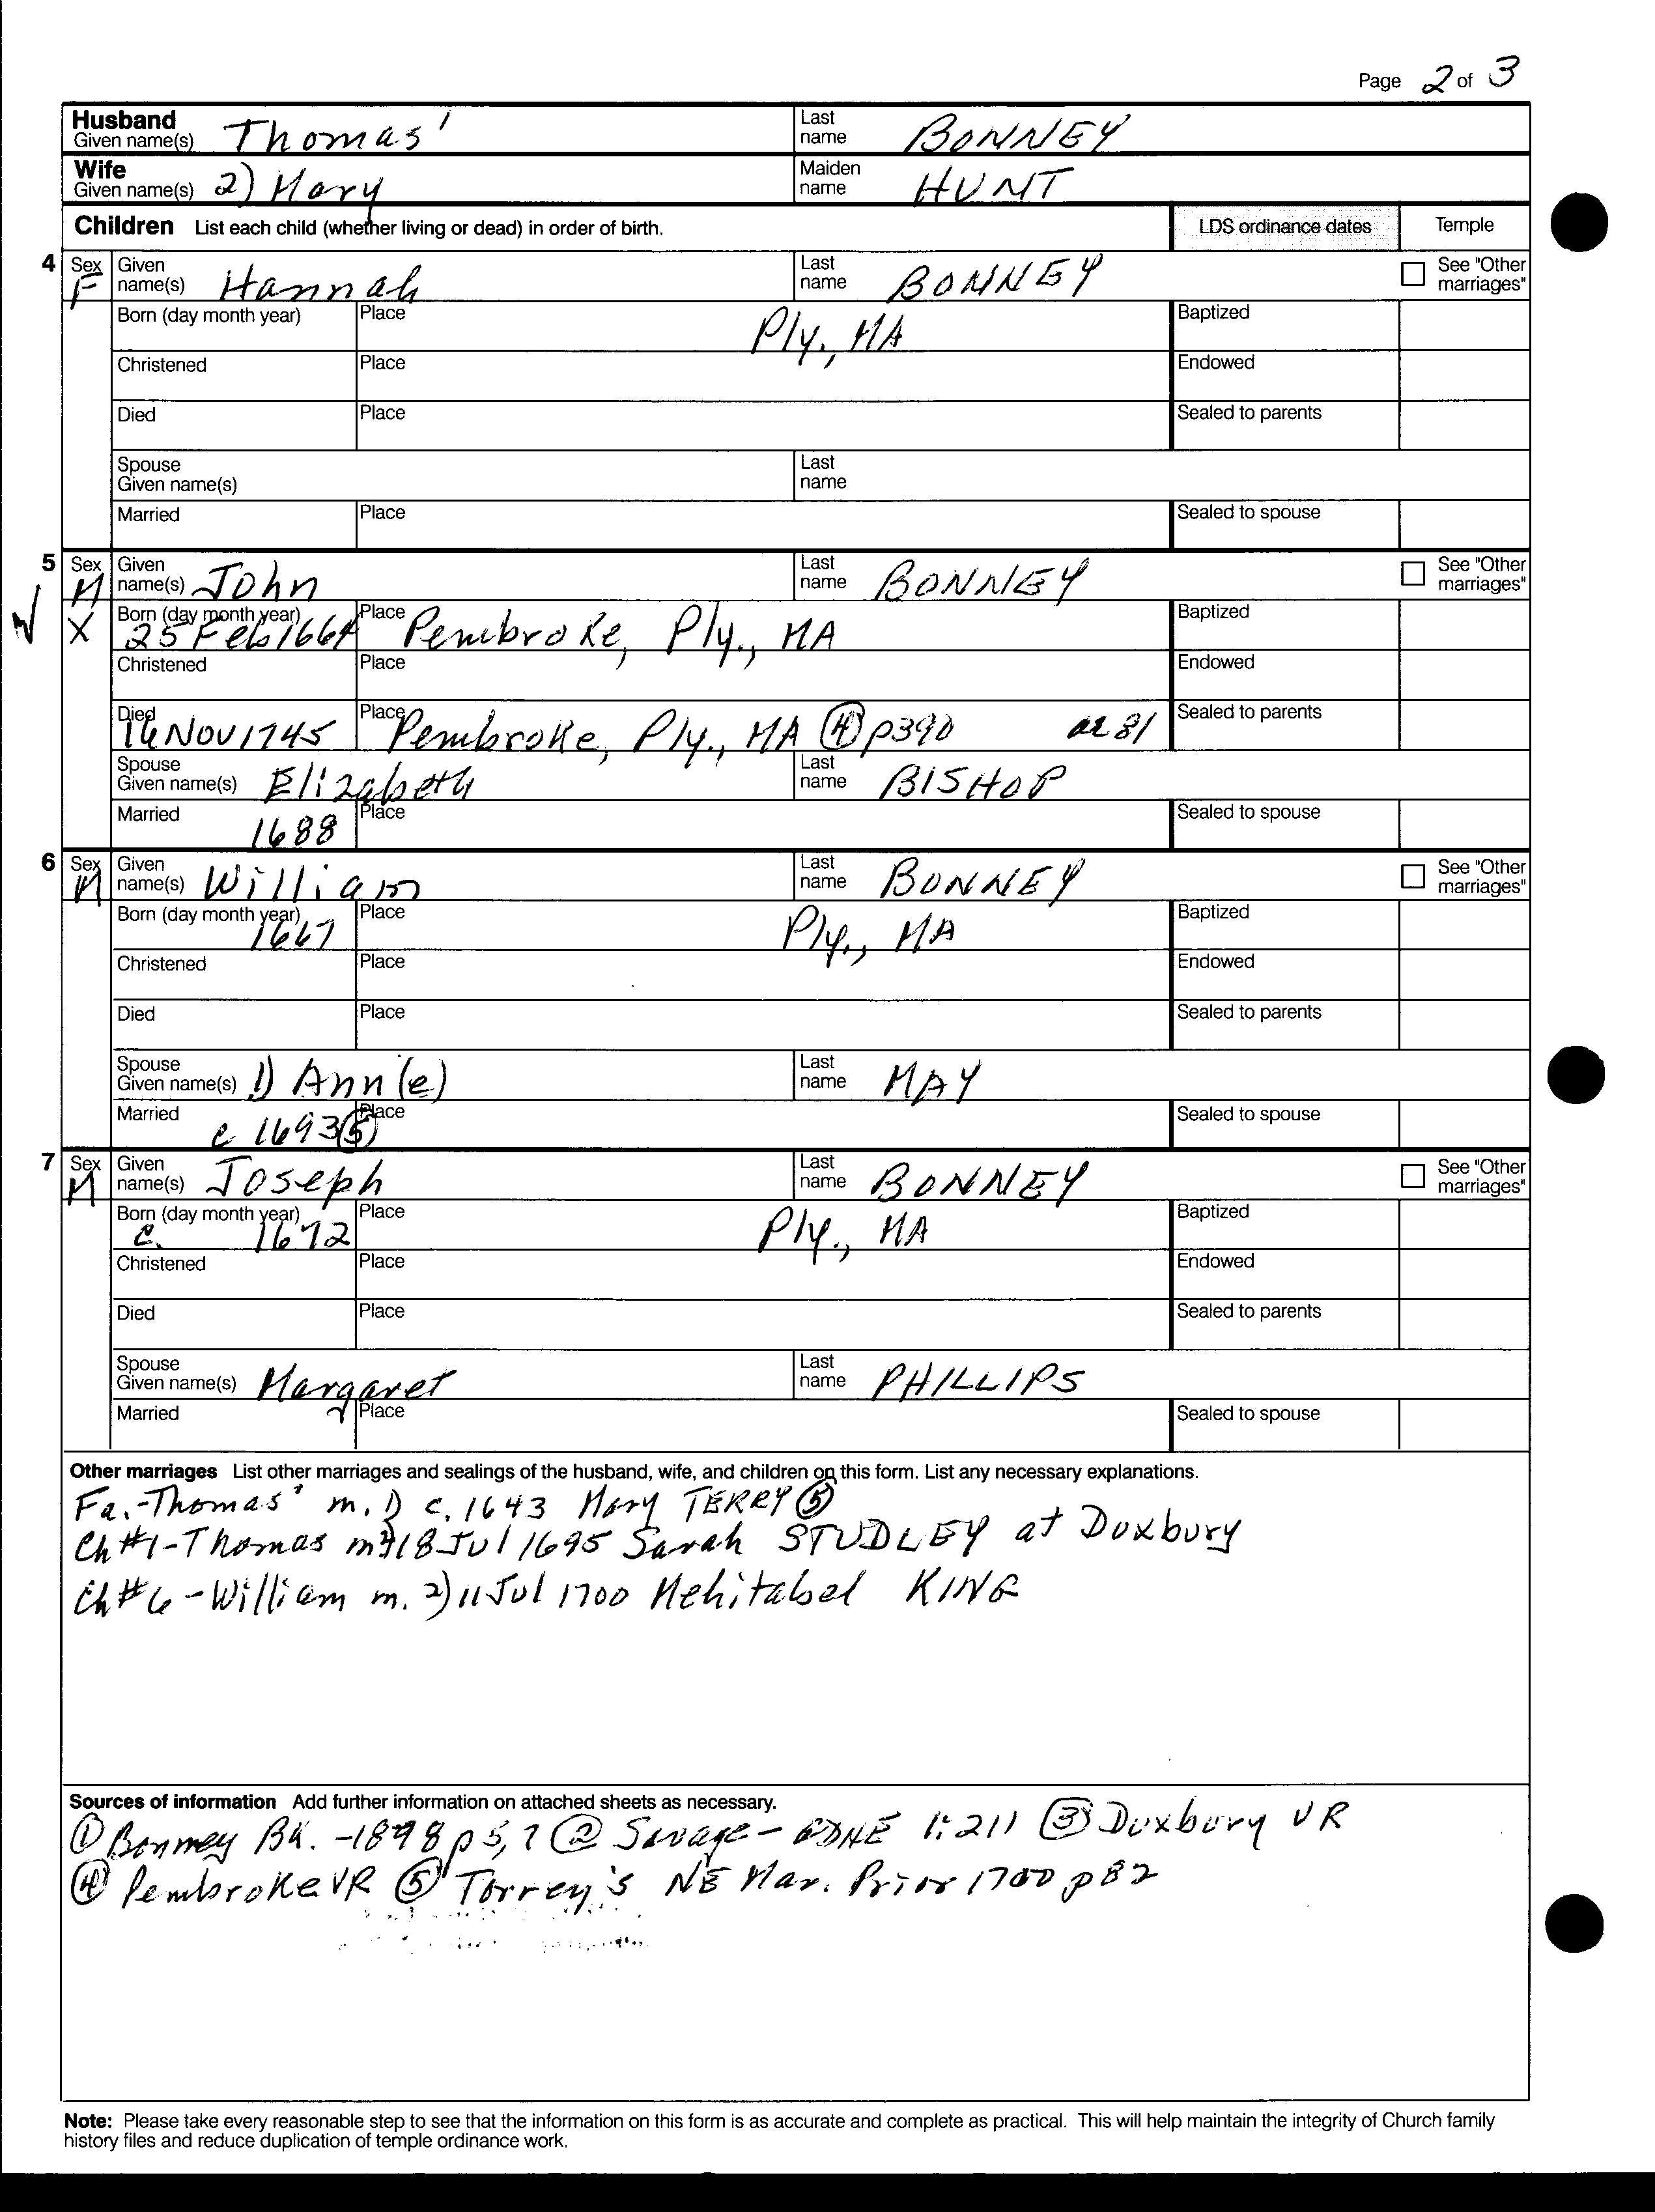 Page 2 of 3
Husband Given name(s) Thomas¹ Last name BONNEY
Wife Given name(s) 2) Mary Maiden name HUNT
Children List each child (whether living or dead) in order of birth. LDS ordinance dates Temple
4 Sex F Given name(s) Hannah Last name BONNEY See "Other marriages"
Born (day month year) Place Ply., MA Baptized
Christened Place Endowed
Died Place Sealed to parents
Spouse Given name(s) Last name
Married Place Sealed to spouse
5 Sex M Given name(s) John Last name BONNEY See "Other marriages"
X Born (day month year) 25 Feb 1664 Place Pembroke, Ply., MA Baptized
Christened Place Endowed
Died 16 NOV 1745 Place Pembroke, Ply., MA ④ p390 ae 81 Sealed to parents
Spouse Given name(s) Elizabeth Last name BISHOP
Married 1688 Place Sealed to spouse
6 Sex M Given name(s) William Last name BONNEY See "Other marriages"
Born (day month year) 1667 Place Ply., MA Baptized
Christened Place Endowed
Died Place Sealed to parents
Spouse Given name(s) 1) Ann(e) Last name MAY
Married c 1693 ⑤ Place Sealed to spouse
7 Sex M Given name(s) Joseph Last name BONNEY See "Other marriages"
Born (day month year) c. 1672 Place Ply., MA Baptized
Christened Place Endowed
Died Place Sealed to parents
Spouse Given name(s) Margaret Last name PHILLIPS
Married Place Sealed to spouse
Other marriages List other marriages and sealings of the husband, wife, and children on this form. List any necessary explanations.
Fa.-Thomas¹ m. 1) c. 1643 Mary TERRY ⑤
Ch #1-Thomas m 18 Jul 1695 Sarah STUDLEY at Duxbury
Ch #6-William m. 2) 11 Jul 1700 Mehitabel KING
Sources of information Add further information on attached sheets as necessary.
① Bonney Bk. -1898 p 5, 7 ② Savage- GDNE 1:211 ③ Duxbury VR
④ Pembroke VR ⑤ Torrey's NE Mar. Prior 1700 p 82
Note: Please take every reasonable step to see that the information on this form is as accurate and complete as practical. This will help maintain the integrity of Church family
history files and reduce duplication of temple ordinance work.